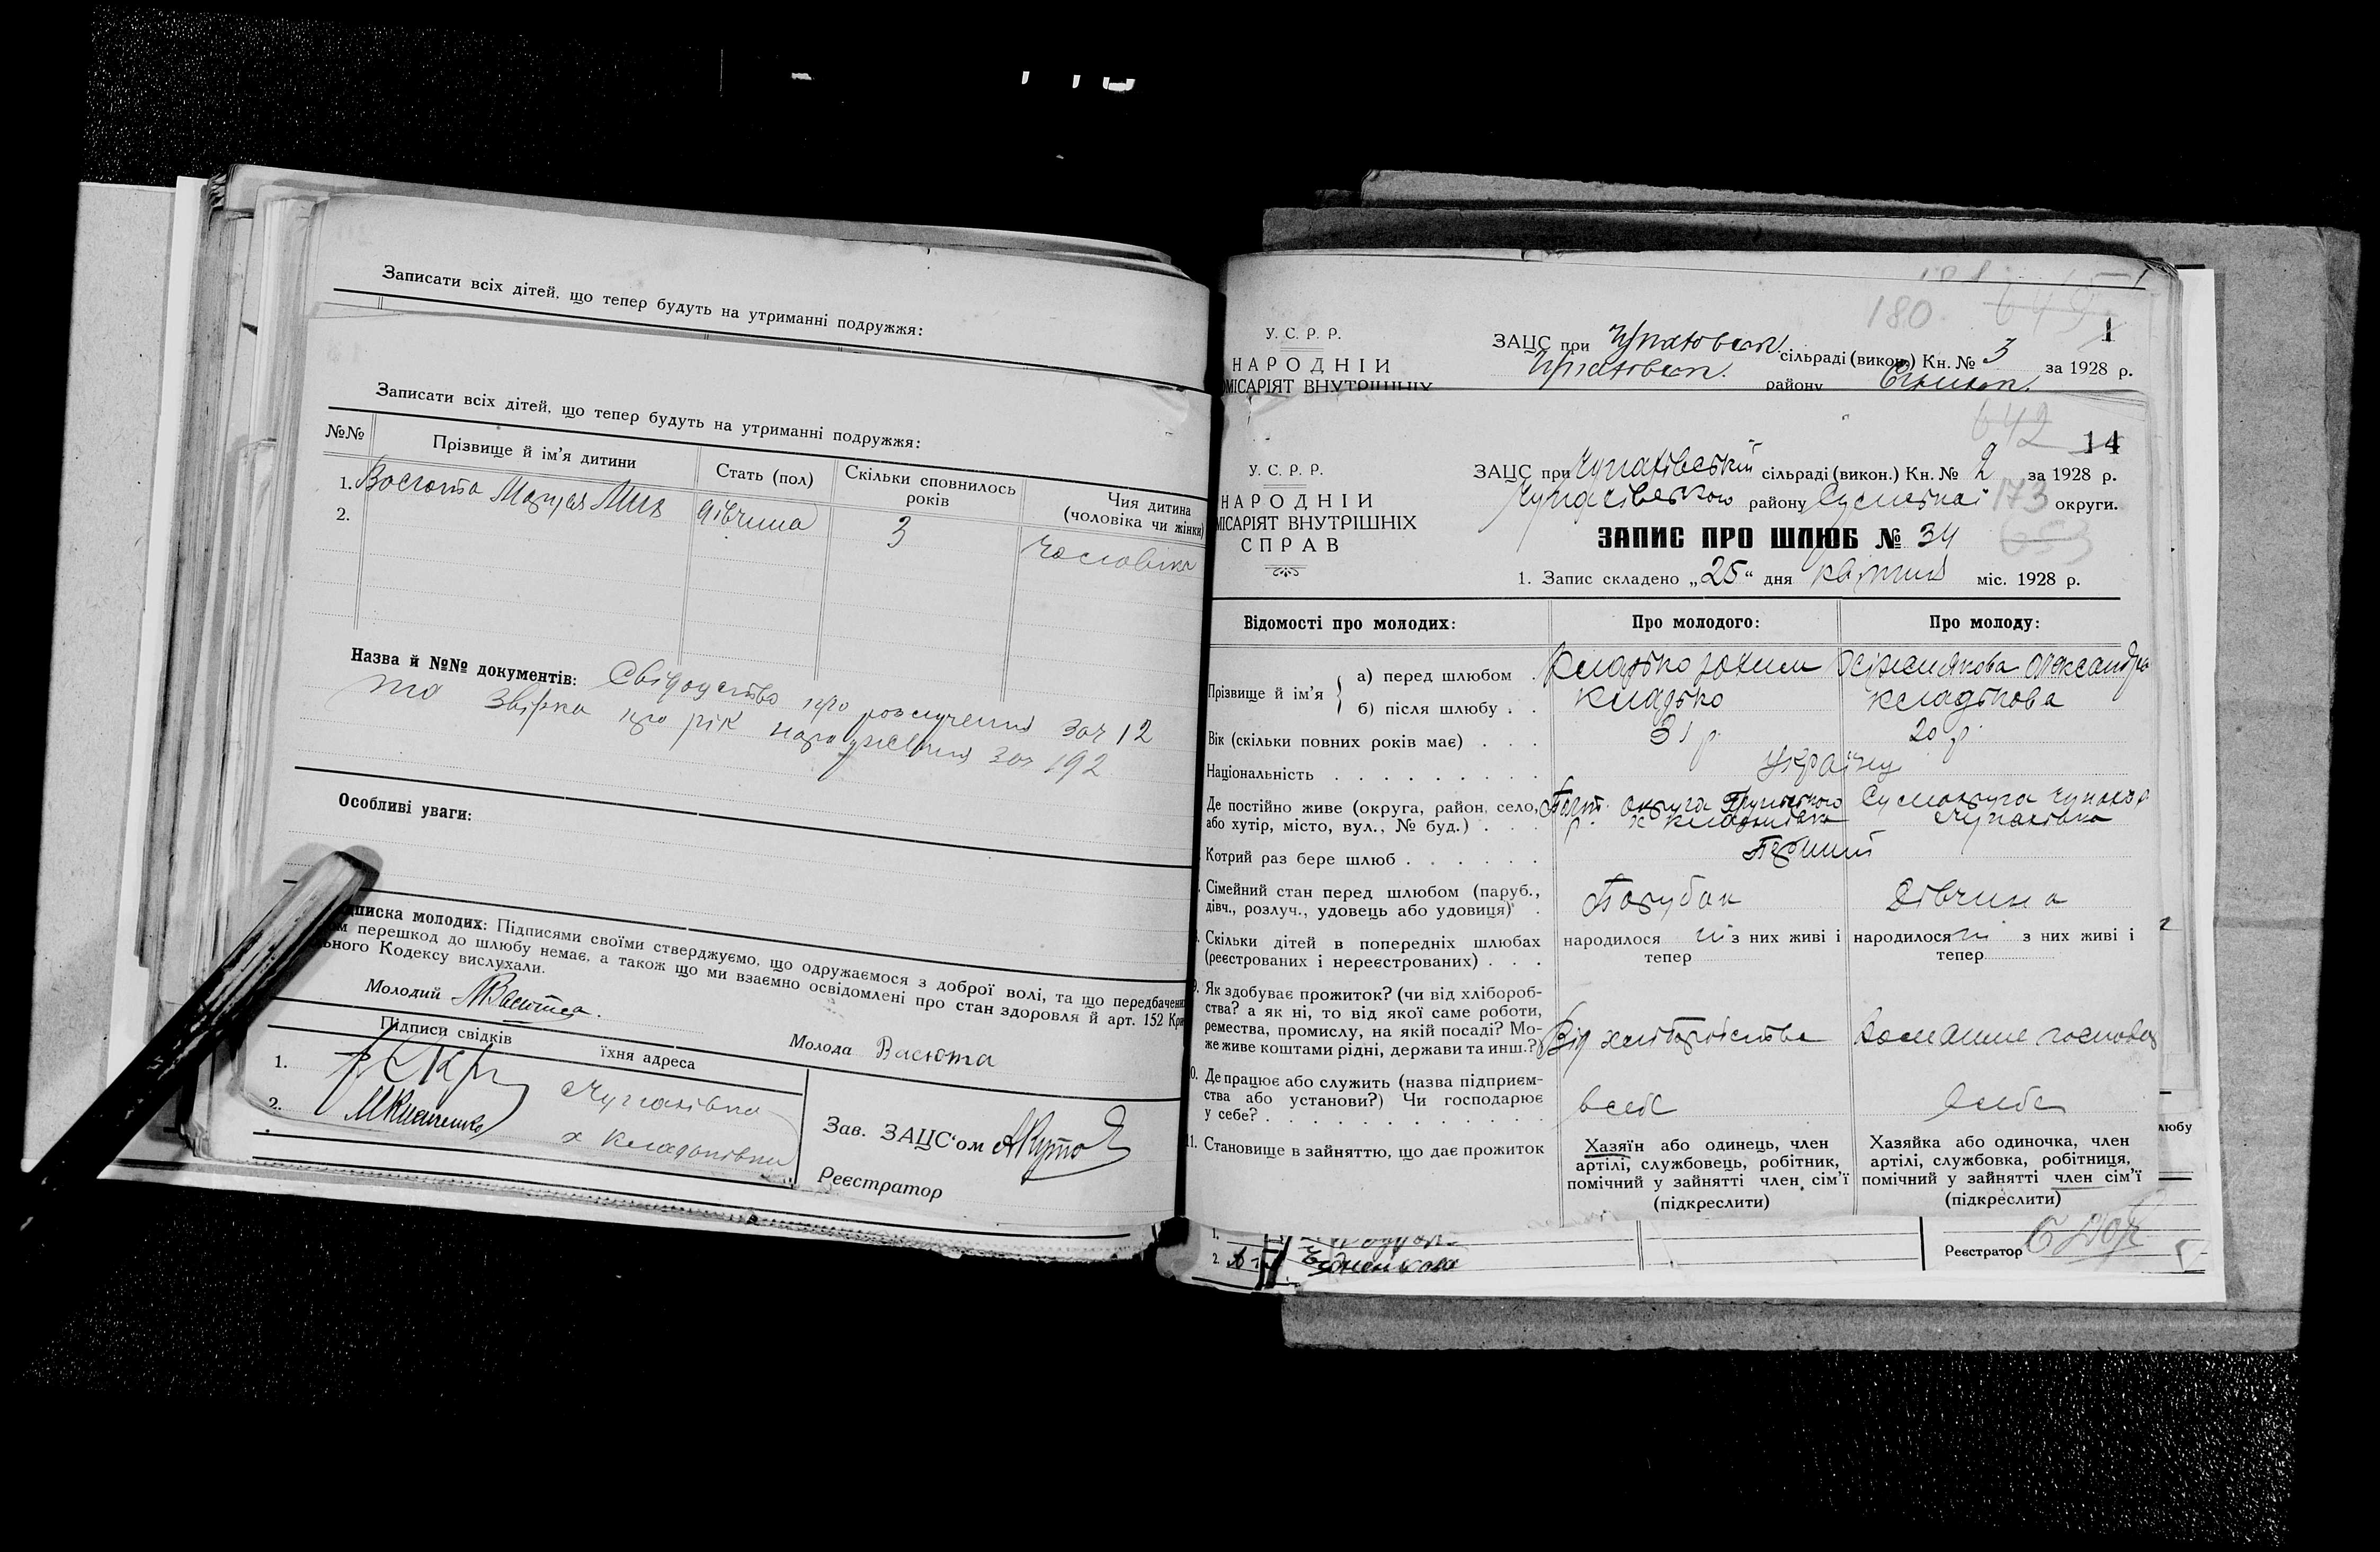 Записати всіх дітей, що тепер будуть на утриманні подружжя:
Записати всіх дітей, що тепер будуть на утриманні подружжя:
№№ Прізвище й ім'я дитини Стать (пол) Скільки сповнилось років Чия дитина (чоловіка чи жінки)
1. Васюта Марія Мик дівчина 3 чоловіка
2.
Назва й №№ документів: Свідоцтво про розлучення за № 12
та звірка про рік народження за № 192
Особливі уваги:
писка молодих: Підписями своїми стверджуємо, що одружаємося з доброї волі, та що передбачени
м перешкод до шлюбу немає, а також що ми взаємно освідомлені про стан здоровля й арт. 152 Кри
льного Кодексу вислухали.
Молодий МВасюта.
Молода Васюта
Підписи свідків їхня адреса
1. Чупахівка
2. х Кладьківка
Зав. ЗАЦС'ом
Реєстратор
180
1
У. С. Р. Р.
НАРОДНІЙ
МІСАРІЯТ ВНУТРІШНІХ
ЗАЦС при сільраді (викон.) Кн. № 3 за 1928 р.
району
642 14
У. С. Р. Р.
НАРОДНІЙ
МІСАРІЯТ ВНУТРІШНІХ
СПРАВ
ЗАЦС при Чупахівській сільраді (викон.) Кн. № 2 за 1928 р.
Чупахівського району Сумської 173 округи.
653
ЗАПИС ПРО ШЛЮБ № 34
1. Запис складено „25“ дня квітня міс. 1928 р.
Відомості про молодих: Про молодого: Про молоду:
Прізвище й ім'я а) перед шлюбом . Кладько Яким Олександра
б) після шлюбу . . Кладько Кладькова
Вік (скільки повних років має) . . . 31 р. 20 р.
Національність . . . . . . . . . Українці
Де постійно живе (округа, район, село, округа
або хутір, місто, вул., № буд.) . . . р. х Чупахівка
Котрий раз бере шлюб . . . . . . Перший
Сімейний стан перед шлюбом (паруб., Парубок Дівчина
дівч., розлуч., удовець або удовиця) .
Скільки дітей в попередніх шлюбах народилося ні з них живі і народилося ні з них живі і
(реєстрованих і нереєстрованих) . . . тепер тепер
9. Як здобуває прожиток? (чи від хлібороб-
ства? а як ні, то від якої саме роботи,
ремества, промислу, на якій посаді? Мо- Від хліборобства Домашнє господ
же живе коштами рідні, держави та инш.?)
0. Де працює або служить (назва підприєм-
ства або установи?) Чи господарює в себе в себе
у себе? . . . . . . . . . .
11. Становище в зайняттю, що дає прожиток
Хазяїн або одинець, член
артілі, службовець, робітник,
помічний у зайнятті член сім'ї
(підкреслити)
Хазяйка або одиночка, член
артілі, службовка, робітниця,
помічний у зайнятті член сім'ї
(підкреслити)
любу
1.
2.
Реєстратор